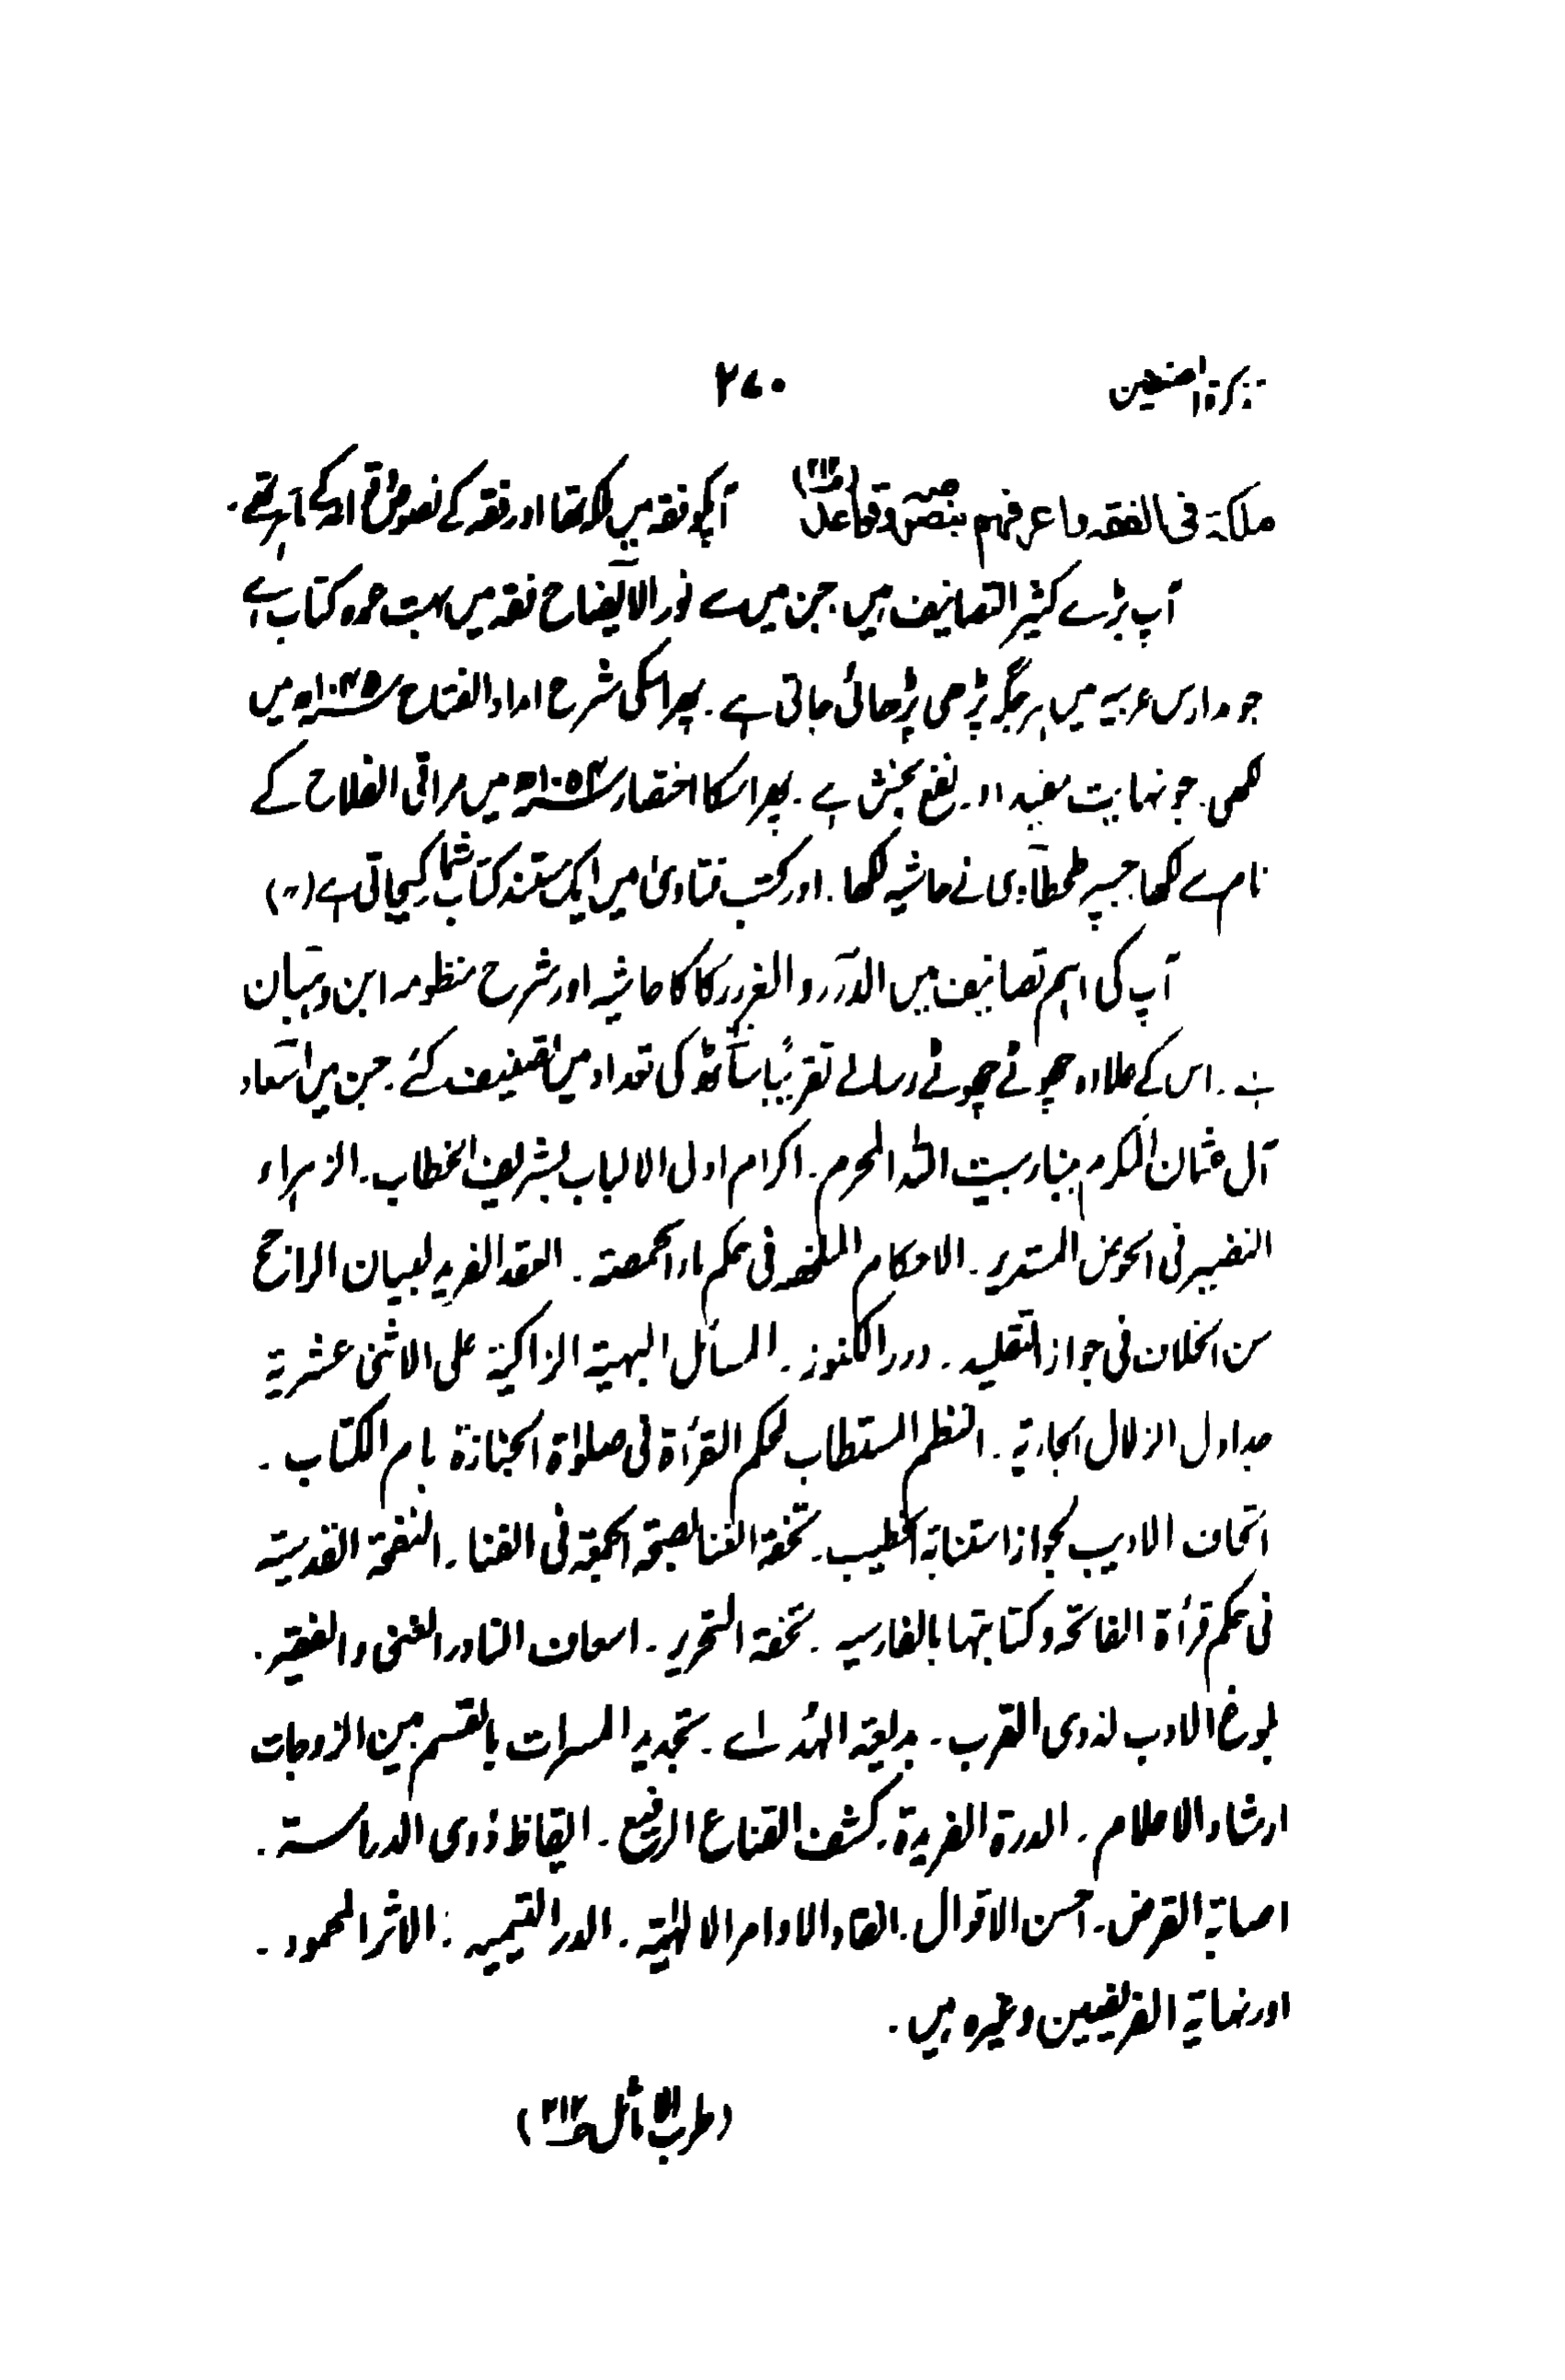 تذکرۃ المصنفین ۲۷۰
ملکۃ فی الفقہ واعرفہم بنصوصہ وقواعدہ آپکو فقہ میں ملکہ تھا اور فقہ کے نصوص قواعد کے ماہر تھے۔
آپ بڑے کثیر التصانیف ہیں۔ جن میں سے نور الایضاح فقہ میں بہت عمدہ کتاب ہے
جو مدارس عربیہ میں ہر جگہ پڑھی پڑھائی جاتی ہے۔ پھر اسکی شرح امداد الفتاح ۱۰۴۵ھ میں
لکھی۔ جو نہایت مفید اور نفع بخش ہے۔ پھر اسکا اختصار ۱۰۵۴ھ میں مراقی الفلاح کے
نام سے لکھا جسپر طحطاوی نے حاشیہ لکھا۔ اور کتب فتاویٰ میں ایک مستند کتاب شمار کیجاتی ہے (〃)
آپ کی اہم تصانیف میں الدرر و الغرر کا کا حاشیہ اور شرح منظومہ ابن وہبان
ہے۔ اس کے علاوہ چھوٹے چھوٹے رسالے تقریبًا ساٹھ کی تعداد میں تصنیف کئے۔ جن میں اسعاد
آل عثمان المکرم ببناء بیت اللہ المحرم۔ اکرام اولی الالباب بشریف الخطاب۔ الزہراء
النضیر فی الحوض المستدیر۔ الاحکام الملخصہ فی حکم ماء الحمصۃ۔ العقد الفرید لبیان الراجح
من الخلاف فی جواز التقلید۔ درر الکنوز۔ المسائل البہیۃ الزاکیۃ علی الاثنیٰ عشریۃ
جداول الزلال الجاریۃ۔ النظم المستطاب لحکم القرأۃ فی صلوٰۃ الجنازۃ بام الکتاب۔
اتحاف الادیب بجواز استنابۃ الخطیب۔ تحفۃ الفنا لصحۃ الجمعۃ فی الفنا۔ النفحۃ القدسیۃ
فی حکم قرأۃ الفاتحہ وکتابتہا بالفارسیہ۔ تحفۃ التحریر۔ اسعاف النادر الغنی والفقیر۔
بلوغ الادب لذوی القرب۔ بدیعۃ الہُدٰے۔ تجدید المسرات بالقسم بین الزوجات
ارشاد الاعلام۔ الدرۃ الفریدۃ۔ کشف القناع الرفیع۔ ایقاظ ذوی الدراستہ۔
اصابۃ القرض۔ احسن الاقوال۔ انفاد الاوامر الالٰہیۃ۔ الدر الیتیمیہ۔ الاثر المحمود۔
اور نہایۃ الفریقین وغیرہ ہیں۔
(طرب الاماثل ص۲۱۲)